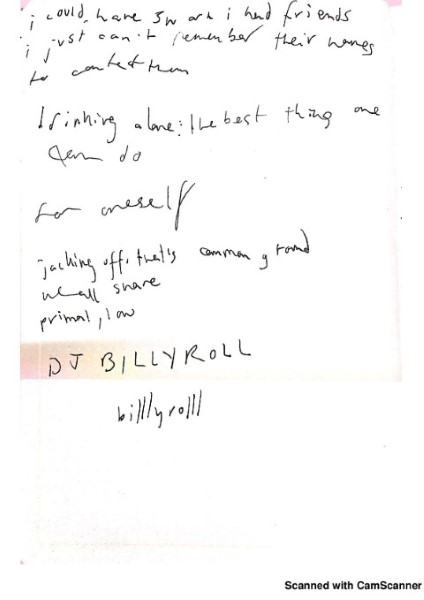 i could have sworn i had friends
i just can't remember their names
to contact them
drinking alone: the best thing one
can do
for oneself
jacking off. that's common ground
we all share
primal, low
DJ BILLYROLL
billlyrolll
Scanned with CamScanner